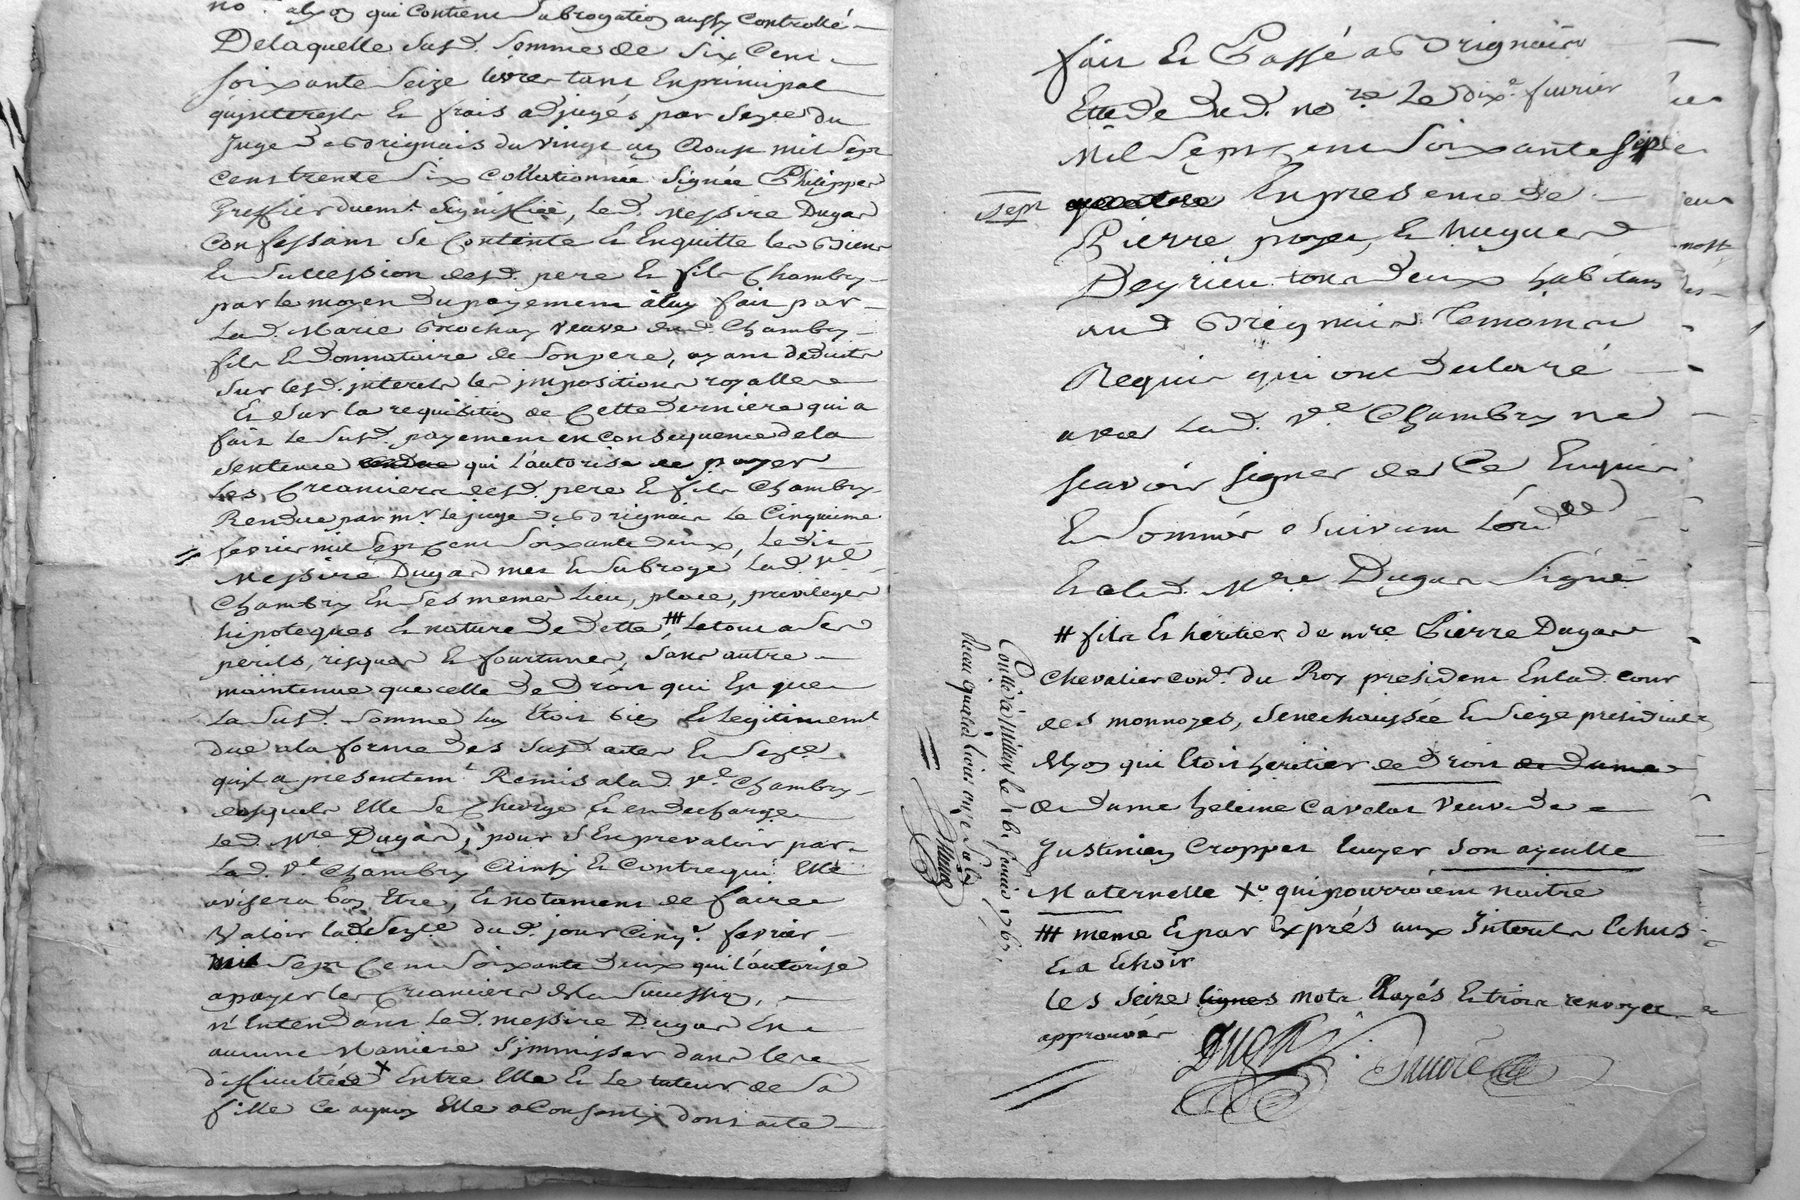 no.re a lyon qui contient subrogation aussy controllé
De laquelle susd. somme de six cent
soixante seize livres tant en principal
qu'interests et frais adjugés par sence du
juge de Grignais du vingt un aoust mil sept
cens trente six collationnée signée Philippes
Greffier duemt. signiffiée, led. messire Dugas
confessant se contente et en quitte les biens
et succession desd. pere et fils Chambry
par le moyen du payement à luy fait par
lad. Marie Brochay veuve dud. Chambry
fils et donnataire de son pere, ayant deduits
sur lesd. interests les impositions royalles
Et sur la requisition de cette derniere qui a
fait le susd. payement en consequence de la
sentence qui l'autorise de payer
les creanciers desd. pere et fils Chambry
Rendue par mr. le juge de Grignais le cinquieme
fevrier mil sept cent soixante deux, ledit
Messire Dugas met et subroge lad. ve.
Chambry en ses meme lieu, place, privileges
hipoteques et nature de dette ### le tout a ses
perils, risques et fourtunes, sans autre
maintenue que celle de droit qui est que
la susd. somme luy etoit bien et legitimemt
due a la forme des susd. actes et sence
qu'il a presentemt. Remis a lad. ve. Chambry
desquels elle se charge et en decharge
led. Mre. Dugas, pour s'en prevaloir par
lad. ve. Chambry ainsy et contre qui elle
avisera bon etre, et notament de faire
valoir lad. sence du d. jour cinqe. fevrier
mil sept cent soixante deux qui l'autorise
a payer les creanciers de la succession,
n'entendant led. messire Dugas en
aucune maniere s'immisser dans les
difficultées x entre elle et le tuteur de sa
fille ce aquoy elle a consenty dont acte
fait et Passé a Grignais
Ettude dud. nore. Le dixe. fevrier
Mil sept cent soixante sept
sept quatre En presence de
Pierre et hugues
Deyrieu tous deux habitans
aud. Grignais temoins
Requis qui ont declaré
avec lad. ve. Chambry ne
scavoir signer de ce enquis
et sommés suivant l'ord.ce
et a led. Mre. Dugas signé
# fils et héritier de mre Pierre Dugas
Chevalier cons. du Roy president en lad. cour
des monnoyes, senechaussée et siege presidial
de lyon qui etoit heritier de droit de dame
de dame helene Cavelat veuve de
Justinien Cropper ecuyer son ayeulle
Maternelle x.. qui pourroient naitre
### meme et par exprés aux Interests echus
et a echoir
Les seize lignes mots Rayés et trois renvoyes
approuvés
DUGAS
Controllé à Millery le 16 fevrier 1767.